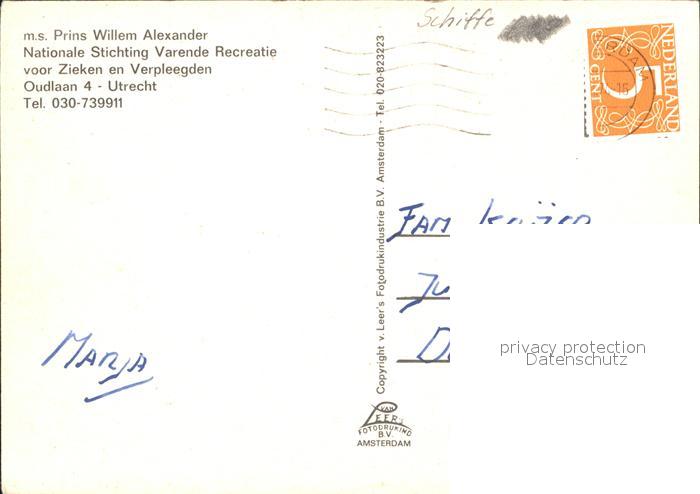 m.s. Prins Willem Alexander
Nationale Stichting Varende Recreatie
voor Zieken en Verpleegden
Oudlaan 4 - Utrecht
Tel. 030-739911
Schiffe
NEDERLAND
5
CENT
Copyright v. Leer's Fotodrukindustrie B.V. Amsterdam - Tel. 020-823223
FAM
MARJA
privacy protection
Datenschutz
VAN
LEER'S
FOTODRUKIND
B.V.
AMSTERDAM